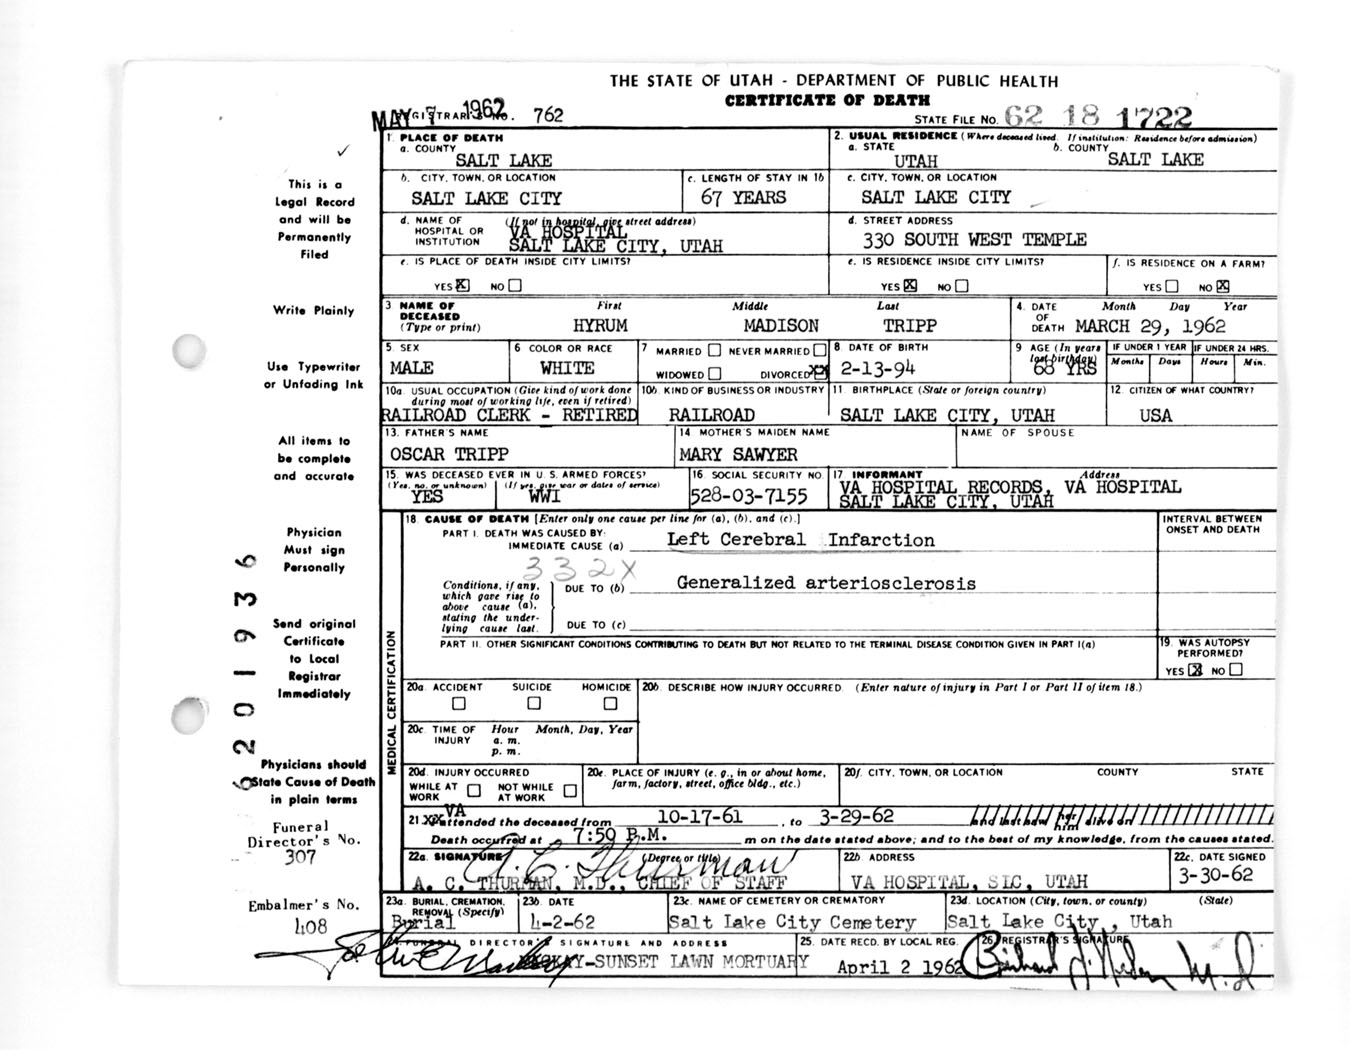 THE STATE OF UTAH - DEPARTMENT OF PUBLIC HEALTH
CERTIFICATE OF DEATH
MAY 7 1962 REGISTRAR'S NO. 762
STATE FILE NO. 62 18 1722
1. PLACE OF DEATH
a. COUNTY
SALT LAKE
2. USUAL RESIDENCE (Where deceased lived. If institution: Residence before admission)
a. STATE b. COUNTY
UTAH SALT LAKE
b. CITY, TOWN, OR LOCATION
SALT LAKE CITY
c. LENGTH OF STAY IN 1b
67 YEARS
c. CITY, TOWN, OR LOCATION
SALT LAKE CITY
d. NAME OF HOSPITAL OR INSTITUTION (If not in hospital, give street address)
VA HOSPITAL
SALT LAKE CITY, UTAH
d. STREET ADDRESS
330 SOUTH WEST TEMPLE
e. IS PLACE OF DEATH INSIDE CITY LIMITS?
YES X NO
e. IS RESIDENCE INSIDE CITY LIMITS?
YES X NO
f. IS RESIDENCE ON A FARM?
YES NO X
3 NAME OF DECEASED (Type or print)
First Middle Last
HYRUM MADISON TRIPP
4. DATE OF DEATH Month Day Year
MARCH 29, 1962
5. SEX
MALE
6 COLOR OR RACE
WHITE
7 MARRIED NEVER MARRIED
WIDOWED DIVORCED XX
8 DATE OF BIRTH
2-13-94
9 AGE (In years last birthday)
68 YRS
IF UNDER 1 YEAR IF UNDER 24 HRS.
Months Days Hours Min.
10a. USUAL OCCUPATION (Give kind of work done during most of working life, even if retired)
RAILROAD CLERK - RETIRED
10b. KIND OF BUSINESS OR INDUSTRY
RAILROAD
11. BIRTHPLACE (State or foreign country)
SALT LAKE CITY, UTAH
12. CITIZEN OF WHAT COUNTRY?
USA
13. FATHER'S NAME
OSCAR TRIPP
14 MOTHER'S MAIDEN NAME
MARY SAWYER
NAME OF SPOUSE
15. WAS DECEASED EVER IN U.S. ARMED FORCES?
(Yes, no, or unknown) (If yes, give war or dates of service)
YES WWI
16 SOCIAL SECURITY NO.
528-03-7155
17 INFORMANT Address
VA HOSPITAL RECORDS, VA HOSPITAL
SALT LAKE CITY, UTAH
MEDICAL CERTIFICATION
18. CAUSE OF DEATH [Enter only one cause per line for (a), (b), and (c).]
INTERVAL BETWEEN ONSET AND DEATH
PART I. DEATH WAS CAUSED BY:
IMMEDIATE CAUSE (a) Left Cerebral Infarction
332X
Conditions, if any, which gave rise to above cause (a), stating the underlying cause last.
DUE TO (b) Generalized arteriosclerosis
DUE TO (c)
PART II. OTHER SIGNIFICANT CONDITIONS CONTRIBUTING TO DEATH BUT NOT RELATED TO THE TERMINAL DISEASE CONDITION GIVEN IN PART I(a)
19. WAS AUTOPSY PERFORMED?
YES X NO
20a. ACCIDENT SUICIDE HOMICIDE
20b. DESCRIBE HOW INJURY OCCURRED. (Enter nature of injury in Part I or Part II of item 18.)
20c. TIME OF INJURY Hour Month, Day, Year
a. m.
p. m.
20d. INJURY OCCURRED
WHILE AT WORK NOT WHILE AT WORK
20e. PLACE OF INJURY (e. g., in or about home, farm, factory, street, office bldg., etc.)
20f. CITY, TOWN, OR LOCATION COUNTY STATE
21. XX VA attended the deceased from 10-17-61, to 3-29-62 and last saw her him alive on
Death occurred at 7:50 P.M. m on the date stated above; and to the best of my knowledge, from the causes stated.
22a. SIGNATURE (Degree or title)
A. C. Thurman
A. C. THURMAN, M.D., CHIEF OF STAFF
22b. ADDRESS
VA HOSPITAL, SLC, UTAH
22c. DATE SIGNED
3-30-62
23a. BURIAL, CREMATION, REMOVAL (Specify)
Burial
23b. DATE
4-2-62
23c. NAME OF CEMETERY OR CREMATORY
Salt Lake City Cemetery
23d. LOCATION (City, town, or county) (State)
Salt Lake City, Utah
FUNERAL DIRECTOR'S SIGNATURE AND ADDRESS
SUNSET LAWN MORTUARY
25. DATE RECD. BY LOCAL REG.
April 2 1962
26. REGISTRAR'S SIGNATURE
M.D.
This is a
Legal Record
and will be
Permanently
Filed
Write Plainly
Use Typewriter
or Unfading Ink
All items to
be complete
and accurate
Physician
Must sign
Personally
Send original
Certificate
to Local
Registrar
Immediately
Physicians should
State Cause of Death
in plain terms
Funeral
Director's No.
307
Embalmer's No.
408
201936